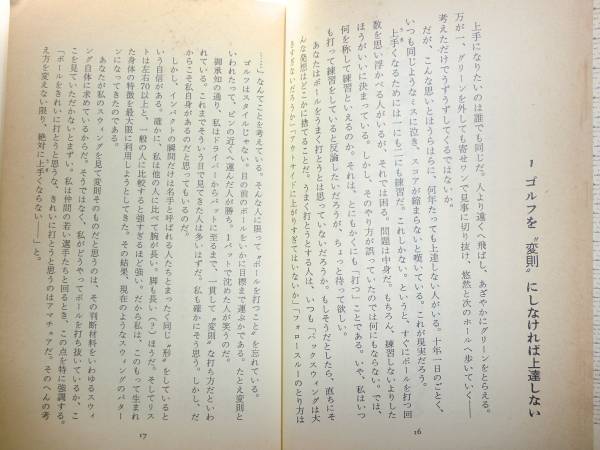 1 ゴルフを〝変則〟にしなければ上達しない
上手になりたいのは誰でも同じだ。人より遠くへ飛ばし、あざやかにグリーンをとらえる。
万が一、グリーンを外しても寄せワンで見事に切り抜け、悠然と次のホールへ歩いていく——
考えただけでうずうずしてくるではないか。
だが、こんな思いとはうらはらに、何年たっても上達しない人がいる。十年一日のごとく、
いつも同じようなミスに泣き、スコアが縮まらないと嘆いている。これが現実だろう。
上手くなるためには一にも二にも練習だ。これしかない。というと、すぐにボールを打つ回
数を思い浮かべる人がいるが、それでは困る。問題は中身だ。もちろん、練習しないよりした
ほうがいいに決まっている。しかし、そのやり方が誤っていたのでは何にもならない。では、
何を称して練習といえるのか。それは、とにもかくにも「打つ」ことである。いや、私はいつ
も打って練習をしていると反論したいだろうが、ちょっと待って欲しい。
あなたはボールをうまく打とうとは思っていないだろうか。もしそうだとしたら、直ちにそ
んな発想はどこかに捨てることだ。うまく打とうとする人は、いつも「バックスウィングは大
きすぎないだろうか」「アウトサイドに上がりすぎてはいないか」「フォロースルーのとり方は
16
……」なんてことを考えている。そんな人に限って〝ボールを打つこと〟を忘れている。
ゴルフはスタイルじゃない。目の前のボールをいかに目標まで運ぶかである。たとえ変則と
いわれたって、ピンの近くへ運んだ人が勝ち。1パットで沈めた人が笑うのだ。
御承知の通り、私はドライバーからパットに至るまで、一貫して〝変則〟な打ち方だといわ
れている。これまでそういう目で見てきた人は多いはずだ。私も確かにそう思う。しかし、だ
からこそ私自身があるのだとも思っているのだ。
しかし、インパクトの瞬間だけは名手と呼ばれる人たちとまったく同じ〝形〟をしていると
いう自信がある。確かに、私は他の人に比べて腕が長い。脚も長い(?)ほうだ。そしてリス
トは左右70以上と、一般の人に比較すると強すぎるほど強い。だから私は、このもって生まれ
た身体の特徴を最大限に利用しようとしてきた。その結果、現在のようなスウィングのパター
ンになってきたのである。
あなたが私のスウィングを見て変則そのものだと思うのは、その判断材料をいわゆるスウィ
ング自体に求めているからだ。そうではなく、私がどうやってボールを打ち抜いているか、こ
こを見ていただかないとまずい。私は仲間の若い選手たちと回るとき、この点を特に強調する。
「ボールをきれいに打とうと思うな、きれいに打とうと思うのはアマチュアだ。そのへんの考
え方を変えない限り、絶対に上手くならない——」と。
17